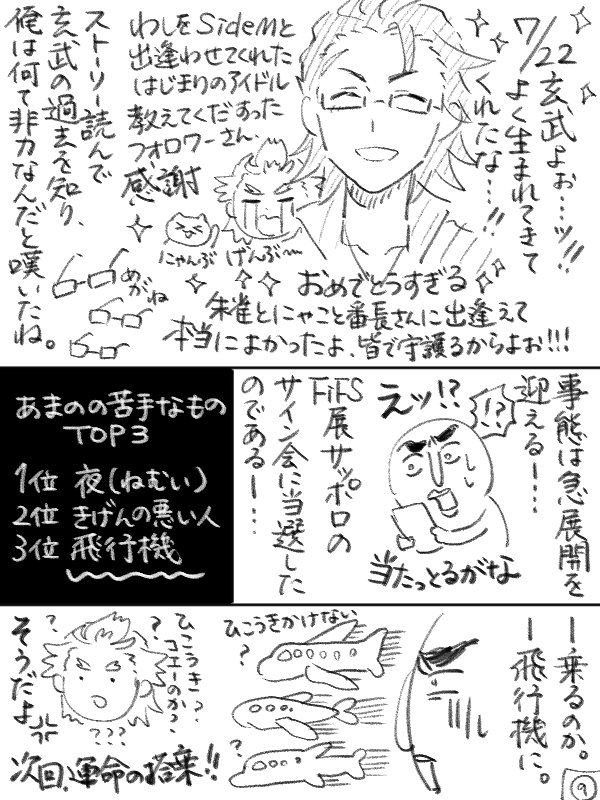 7/22玄武よぉ…ッ!!
よく生まれてきて
くれたな…!!
わしをSideMと
出逢わせてくれた
はじまりのアイドル
教えてくだすった
フォロワーさん、
感謝
ストーリー読んで
玄武の過去を知り、
俺は何て非力なんだと嘆いたね。
にゃんぶ
げんぶ〜
めがね
おめでとうすぎる
朱雀とにゃこと番長さんに出逢えて
本当によかったよ、皆で守護るからよぉ!!!
事態は急展開を
迎える—…
!?
えッ!?
FiFS
展サッポロの
サイン会に当選した
のである—…
当たっとるがな
あまのの苦手なもの
TOP3
1位 夜(ねむい)
2位 きげんの悪い人
3位 飛行機
—乗るのか。
—飛行機に。
ひこうきかけない
?
?
ひこうき?
コエーのか?
?
?
???
そうだよ
次回、運命の搭乗!!
9